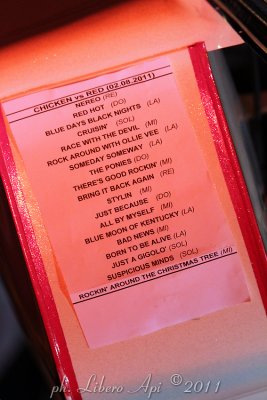 CHICKEN vs RED (02.08.2011)
NEREO (RE)
RED HOT (DO)
BLUE DAYS BLACK NIGHTS (LA)
CRUISIN' (SOL)
RACE WITH THE DEVIL (MI)
ROCK AROUND WITH OLLIE VEE (LA)
SOMEDAY SOMEWAY (LA)
THE PONIES (DO)
THERE'S GOOD ROCKIN' (MI)
BRING IT BACK AGAIN (RE)
STYLIN (MI)
JUST BECAUSE (DO)
ALL BY MYSELF (MI)
BLUE MOON OF KENTUCKY (LA)
BAD NEWS (MI)
BORN TO BE ALIVE (LA)
JUST A GIGOLO' (SOL)
SUSPICIOUS MINDS (SOL)
ROCKIN' AROUND THE CHRISTMAS TREE (MI)
ph. Libero Api ©2011